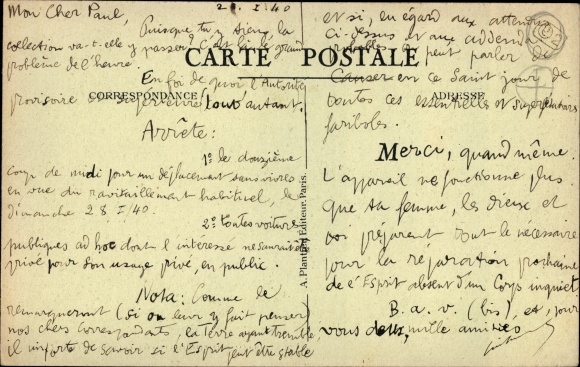 2. I. 40
Mon Cher Paul,
Puisque tu y tiens, la
collection va-t-elle y passer? C'est là le grand
problème de l'heure.
CARTE POSTALE
En foi de quoi l'Autorité
provisoire ou supérieure tout autant.
CORRESPONDANCE
Arrête:
1º le douzième
coup de midi pour un déplacement sans vivres
en vue du ravitaillement habituel, le
dimanche 28 I/40.
2º toutes voitures
publiques ad hoc dont l'intéressé ne saurait
privé pour son usage privé, en public.
Nota: Comme le
remarqueront (si on leur y fait penser)
nos chers correspondants, la terre ayant tremblé,
il importe de savoir si l'Esprit peut être stable
A. Plantin, Editeur, Paris.
et si, en égard aux attentions
ci-dessus et aux addenda
probables on peut parler de
Causer en ce Saint jour de
toutes ces essentielles et supérieures
fariboles.
ADRESSE
Merci, quand même.
L'appareil ne fonctionne plus
que ta femme, les dieux et
toi préparent tout le nécessaire
pour la réparation prochaine
de l'Esprit absent d'un Corps inquiet
B. a. v. (bis), et, pour
vous deux, mille amitiés